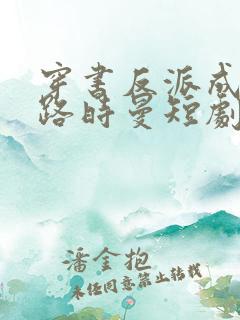 穿书反派成
路时曼短劇
潘金抱
未经同意禁止转载